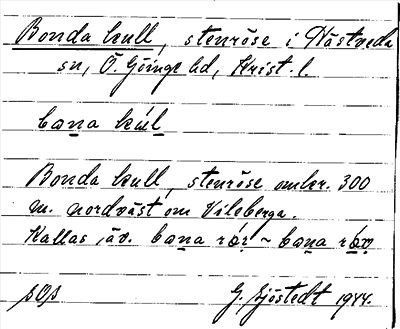 Bonda kull, stenröse i Västveda
sn, Ö. Göinge hd, Krist. l.
bona kul
Bonda kull, stenröse omkr. 300
m. nordväst om Vileberga.
Kallas äv. bona rör ~ bona röv
SOS G. Sjöstedt 1944.